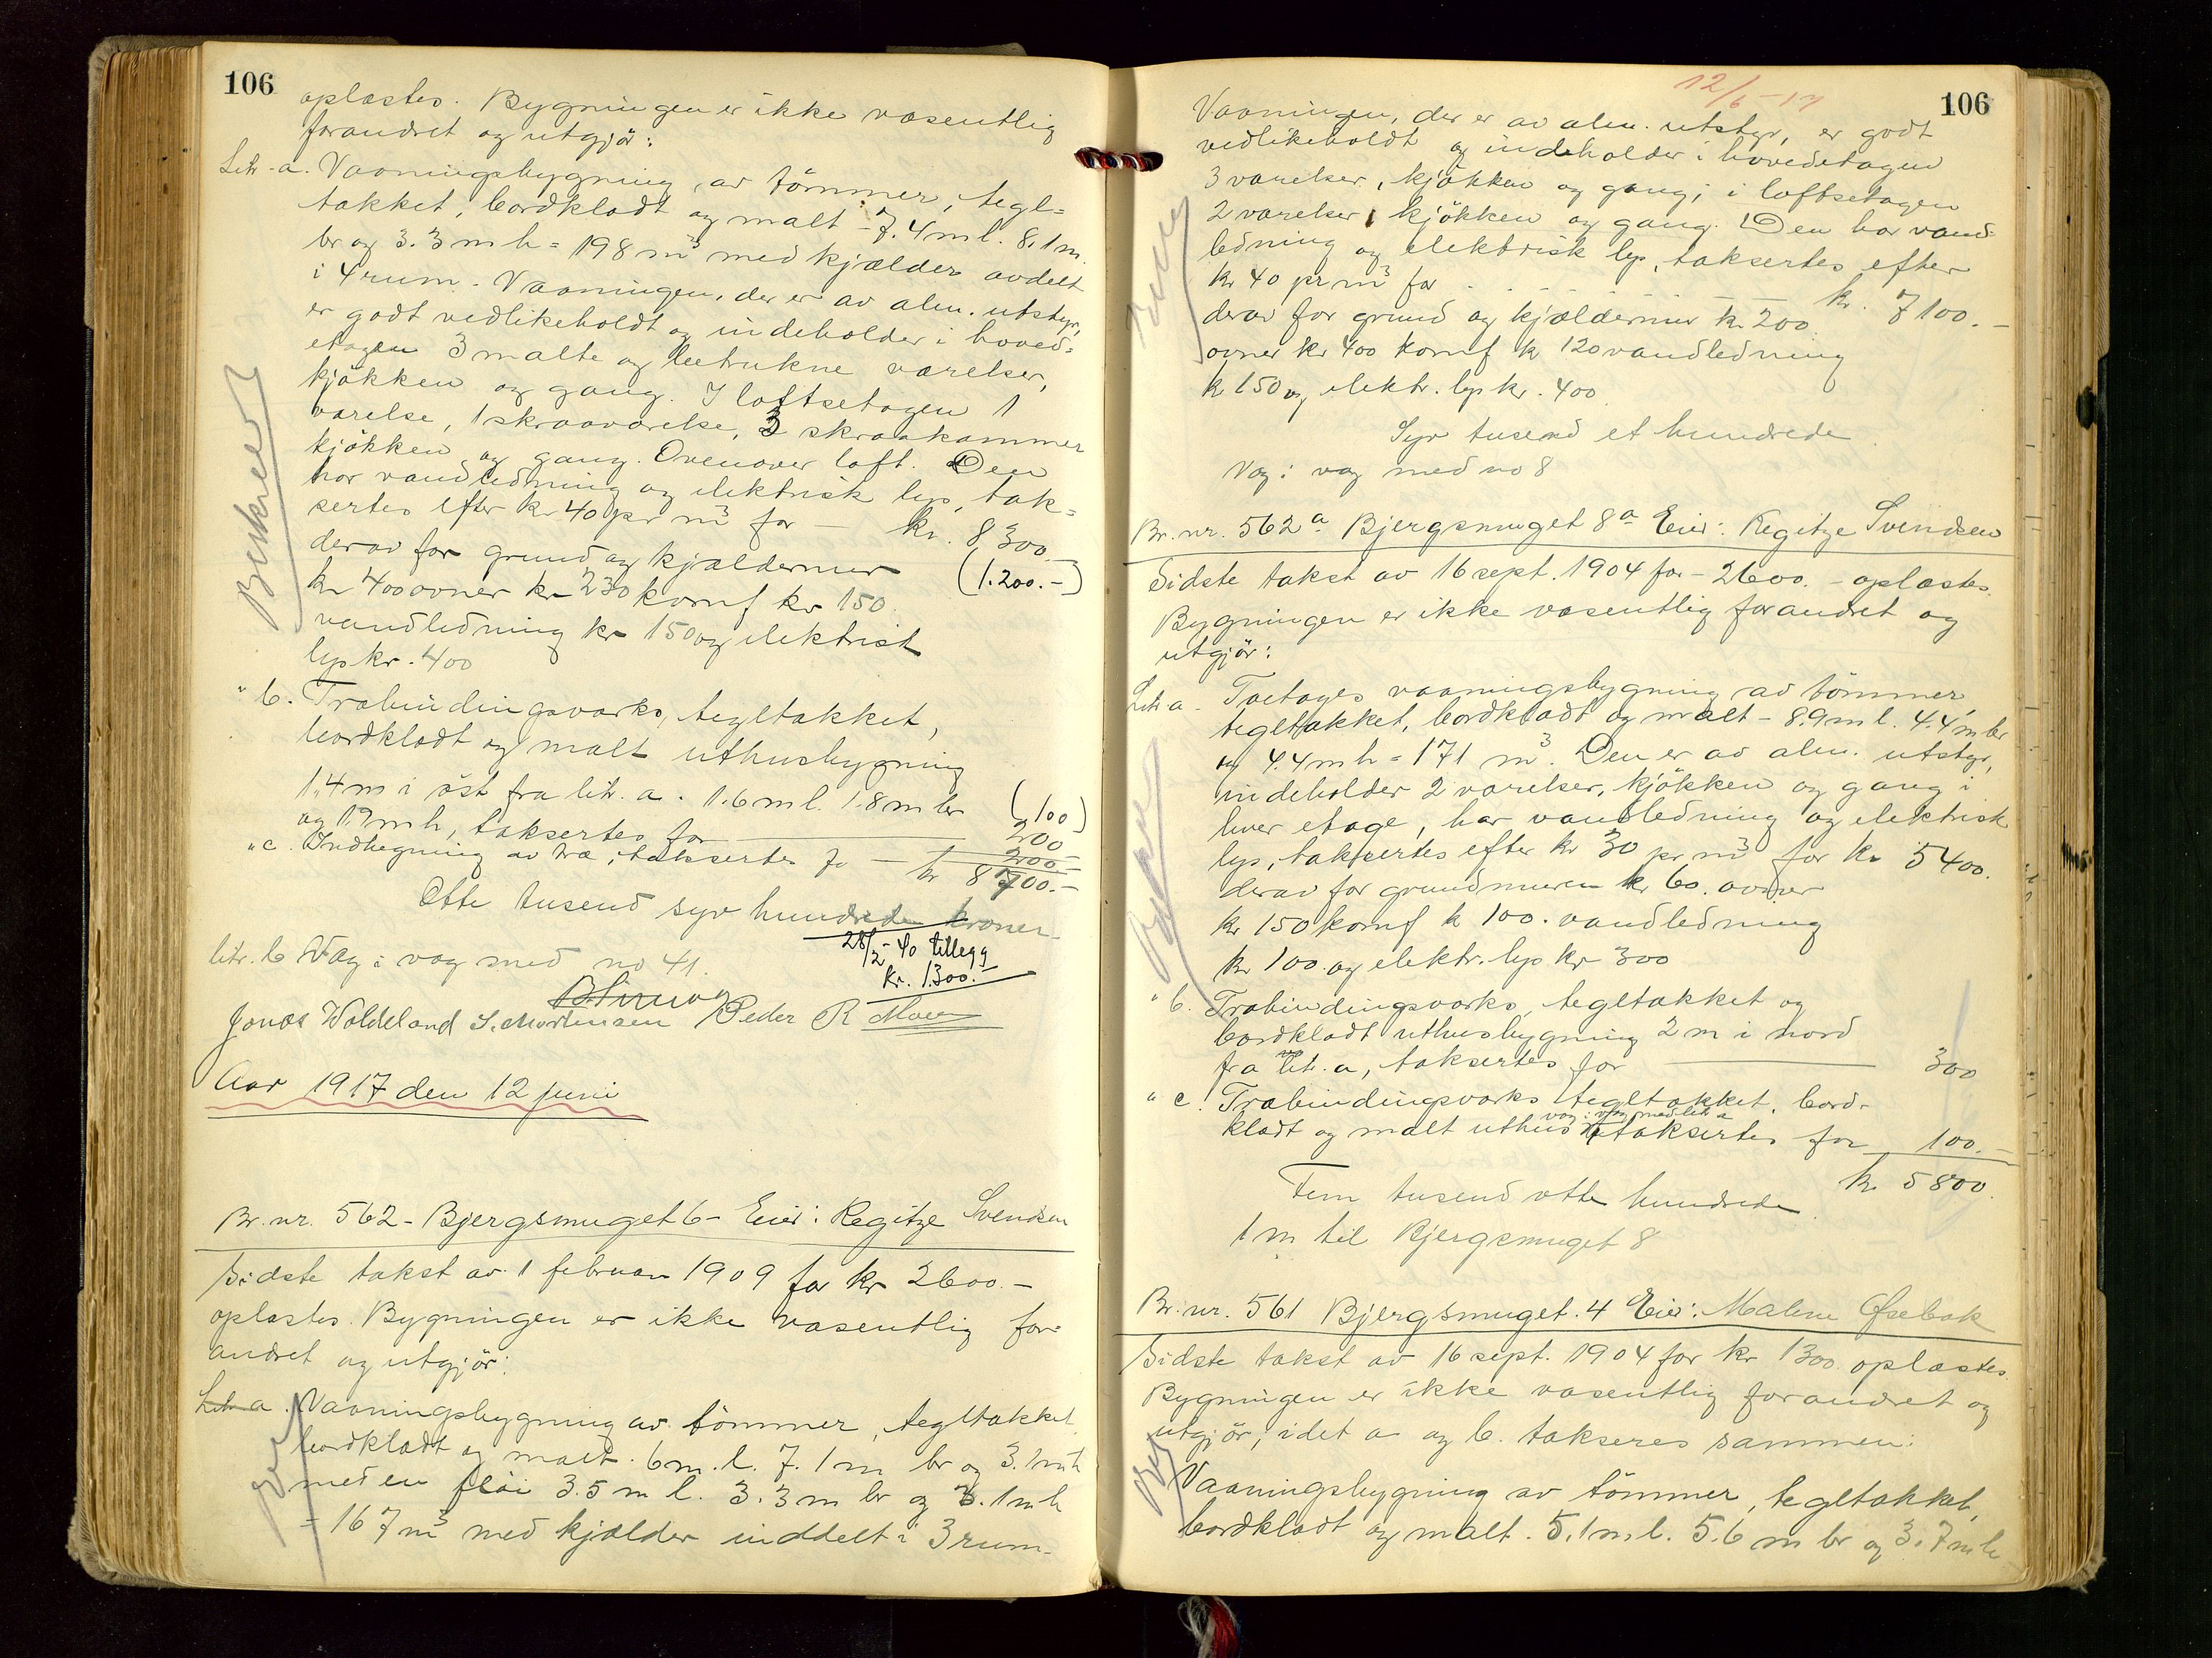 106
oplæstes. Bygningen er ikke væsentlig
forandret og utgjör:
Litr. a. Vaaningsbygning av tömmer, tegl=
takket, bordklædt og malt - 7.4 m l. 8.1 m
br og 3.3 m h = 198 m³ med kjælder avdelt
i 4 rum. Vaaningen, der er av alm. utstyr,
er godt vedlikeholdt og indeholder i hoved=
etagen 3 malte og betrukne værelser,
kjökken og gang. I loftsetagen 1
værelse, 1 skraaværelse, 3 skraakammer
kjökken og gang. Ovenover loft. Den
har vandledning og elektrisk lys, tak=
sertes efter kr 40 pr m³ for — kr. 8300
derav for grund og kjældermur (1.200.-)
kr 400 ovner kr 230 komf kr 150
vandledning kr 150 og elektrisk
lys kr. 400
" b. Træbindingsværks, tegltakket,
bordklædt og malt uthusbygning
1.4 m i öst fra litr. a. 1.6 m l. 1.8 m br (100)
og 1.9 m h, taksertes for 200
" c. Indhegning av træ, taksertes for — 200
kr 8700.-
Otte tusend syv hundrede kroner
28/2-40 tillegg
kr. 1300.-
litr. b Væg i væg med no 41.
Jonas Woldeland S. Mortensen Peder R Moe
Aar 1917 den 12 juni
Br. nr. 562 - Bjergsmuget 6 - Eier: Regitze Svendsen
Sidste takst av 1 februar 1909 for kr 2600.-
oplæstes. Bygningen er ikke væsentlig for=
andret og utgjör:
Litr a. Vaaningsbygning av tömmer, tegltakket
bordklædt og malt. 6 m. l. 7.1 m br og 3.1 m h
med en flöi 3.5 m l. 3.3 m br og 3.1 m h
= 167 m³ med kjælder inddelt i 3 rum.
12/6-17
106
Vaaningen, der er av alm. utstyr, er godt
vedlikeholdt og indeholder i hovedetagen
3 værelser, kjökken og gang; i loftsetagen
2 værelser, kjökken og gang. Den har vand=
ledning og elektrisk lys, taksertes efter
kr 40 pr m³ for kr. 7100.-
derav for grund og kjældermur kr 200
ovner kr 400 komf kr 120 vandledning
kr 150 og elektr. lys kr. 400
Syv tusend et hundrede
Væg i væg med no 8
Br. nr. 562ª Bjergsmuget 8ª Eier: Regitze Svendsen
Sidste takst av 16 sept. 1904 for - 2600. - oplæstes.
Bygningen er ikke væsentlig forandret og
utgjör:
Litr a. Toetages vaaningsbygning av tömmer,
tegltakket, bordklædt og malt - 8.9 m l. 4.4 m br
og 4.4 m h = 171 m³. Den er av alm. utstyr,
indeholder 2 værelser, kjökken og gang i
hver etage, har vandledning og elektrisk
lys, taksertes efter kr 30 pr m³ for kr 5400.
derav for grundmuren kr 60. ovner
kr 150 komf kr 100. vandledning
kr 100 og elektr. lys kr 300
" b. Træbindingsværks, tegltakket og
bordklædt uthusbygning 2 m i nord
fra litr. a, taksertes for 300
" c. Træbindingsværks tegltakket, bord-
væg i væg med litr a
klædt og malt uthus taksertes for 100.-
kr 5800.
Fem tusend otte hundrede
1 m til Bjergsmuget 8
Br. nr. 561 Bjergsmuget. 4 Eier: Malene Øsebak
Sidste takst av 16 sept. 1904 for kr 1300 oplæstes.
Bygningen er ikke væsentlig forandret og
utgjör, idet a og b. takseres sammen:
Vaaningsbygning av tömmer, tegltakket,
bordklædt og malt. 5.1 m l. 5.6 m br og 3.7 m h